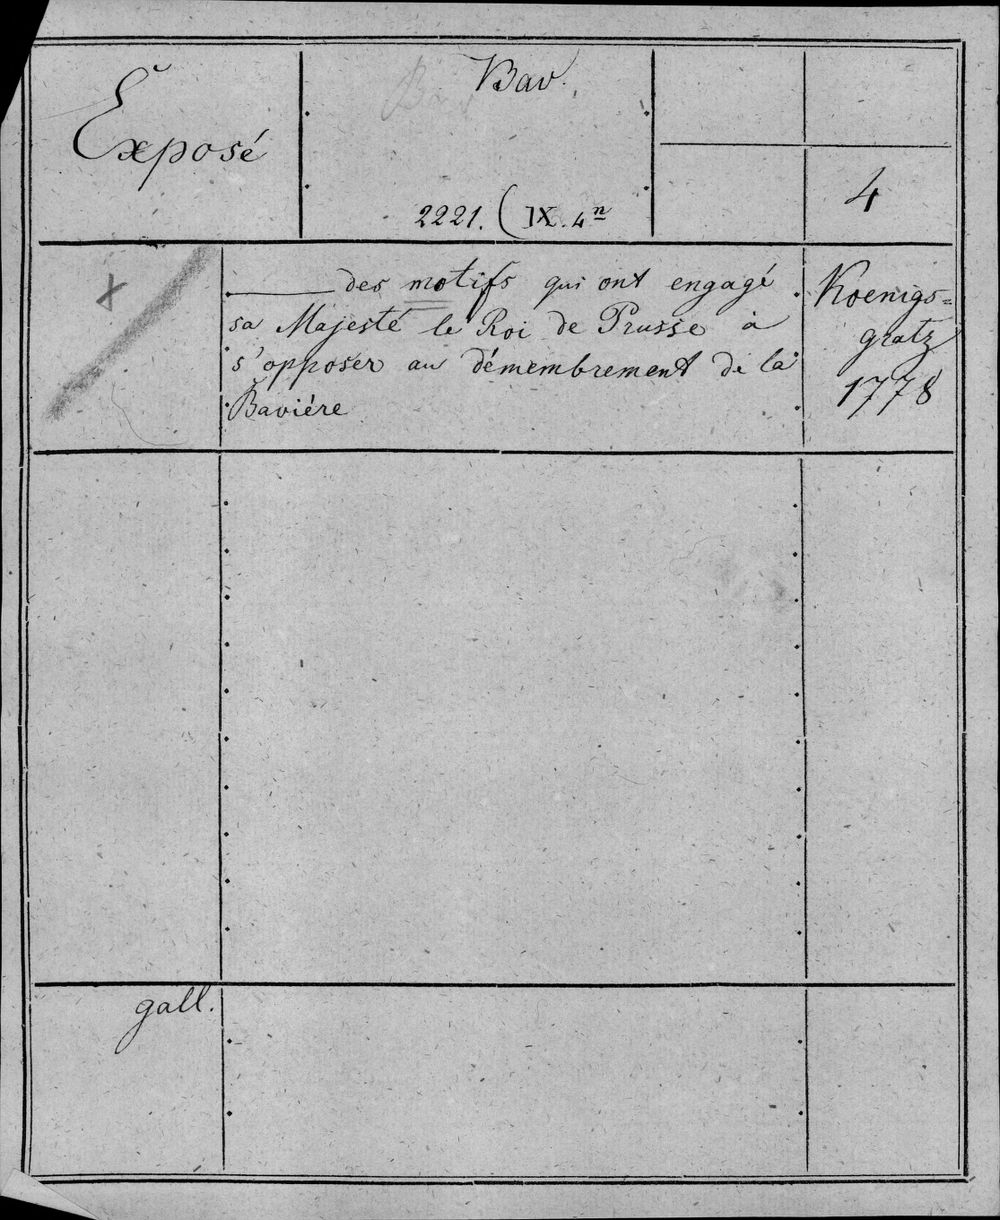 Exposé
Bav.
2221. (IX. 4n
4
——— des motifs qui ont engagé
sa Majesté le Roi de Prusse à
s'opposer au démembrement de la
Baviére
Koenigs=
gratz
1778
gall.